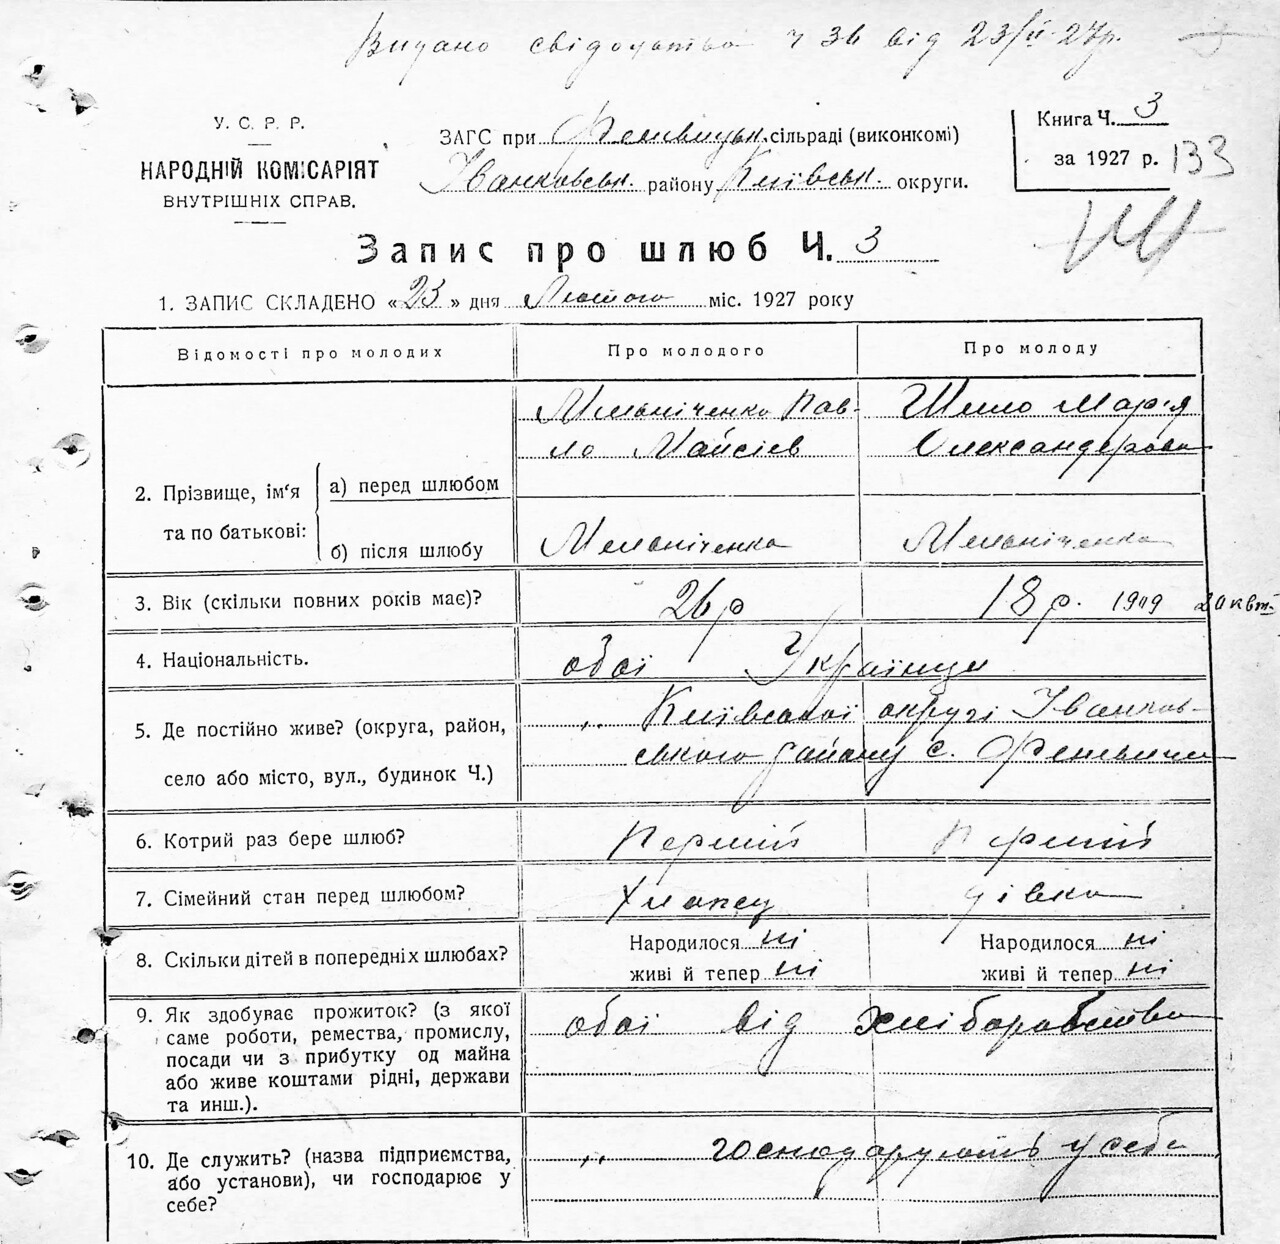 Видано свідоцтво ч 36 від 23/II 27р.
У. С. Р. Р.
НАРОДНІЙ КОМІСАРІЯТ
ВНУТРІШНІХ СПРАВ.
ЗАГС при Феневицьк. сільраді (виконкомі)
Іванковськ. району Київськ. округи.
Книга Ч. 3
за 1927 р. 133
Запис про шлюб Ч. 3
1. ЗАПИС СКЛАДЕНО «23» дня Лютого міс. 1927 року
Відомості про молодих
Про молодого
Про молоду
2. Прізвище, ім'я та по батькові:
а) перед шлюбом
Мельніченко Пав-
ло Мойсіев
Шило Марія
Олександрова
б) після шлюбу
Мельніченко
Мельніченко
3. Вік (скільки повних років має)?
26 р
18 р. 1909 20 квт
4. Національність.
обоі Українци
5. Де постійно живе? (округа, район,
село або місто, вул., будинок Ч.)
„ Київськоі округі Іванков-
ського району с. Феневичи
6. Котрий раз бере шлюб?
Перший
Перший
7. Сімейний стан перед шлюбом?
Хлопец
дівка
8. Скільки дітей в попередніх шлюбах?
Народилося ні
живі й тепер ні
Народилося ні
живі й тепер ні
9. Як здобуває прожиток? (з якої
саме роботи, ремества, промислу,
посади чи з прибутку од майна
або живе коштами рідні, держави
та инш.).
обоі від хліборобства
10. Де служить? (назва підприємства,
або установи), чи господарює у
себе?
„ господарують у себе